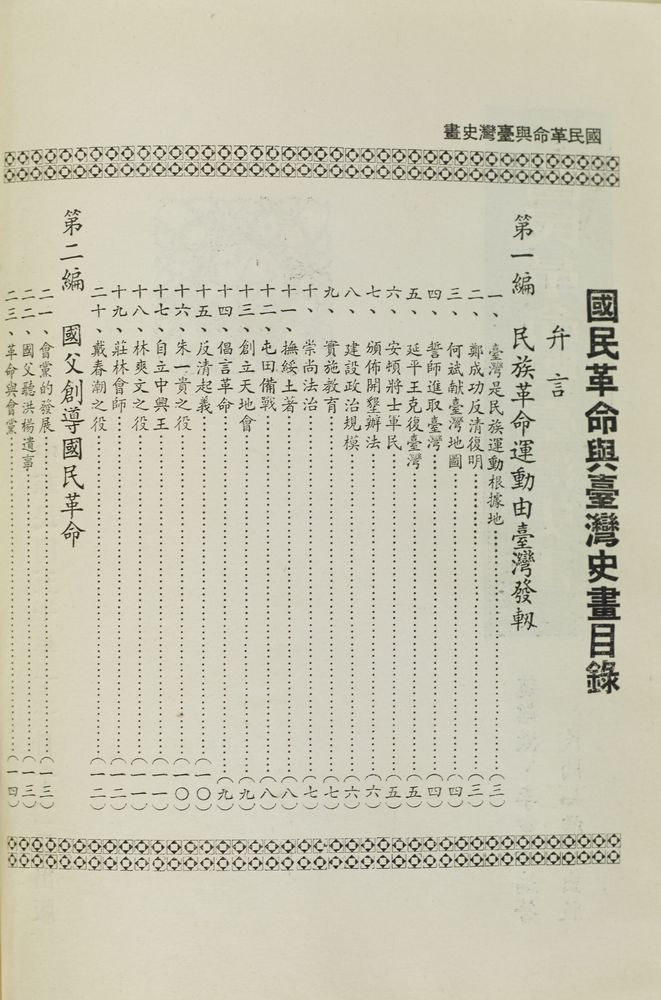 國民革命與臺灣史畫
國民革命與臺灣史畫目錄
弁言
第一編 民族革命運動由臺灣發軔
一、臺灣是民族運動根據地……(三)
二、鄭成功反清復明……(三)
三、何斌献臺灣地圖……(四)
四、誓師進取臺灣……(四)
五、延平王克復臺灣……(五)
六、安頓將士軍民……(五)
七、頒佈開墾辦法……(六)
八、建設政治規模……(六)
九、實施教育……(七)
十、崇尚法治……(七)
十一、撫綏土著……(八)
十二、屯田備戰……(八)
十三、創立天地會……(九)
十四、倡言革命……(九)
十五、反清起義……(一〇)
十六、朱一貴之役……(一〇)
十七、自立中興王……(一一)
十八、林爽文之役……(一一)
十九、莊林會師……(一二)
二十、戴春潮之役……(一二)
第二編 國父創導國民革命
二一、會黨的發展……(一三)
二二、國父聽洪楊遺事……(一三)
二三、革命與會黨……(一四)